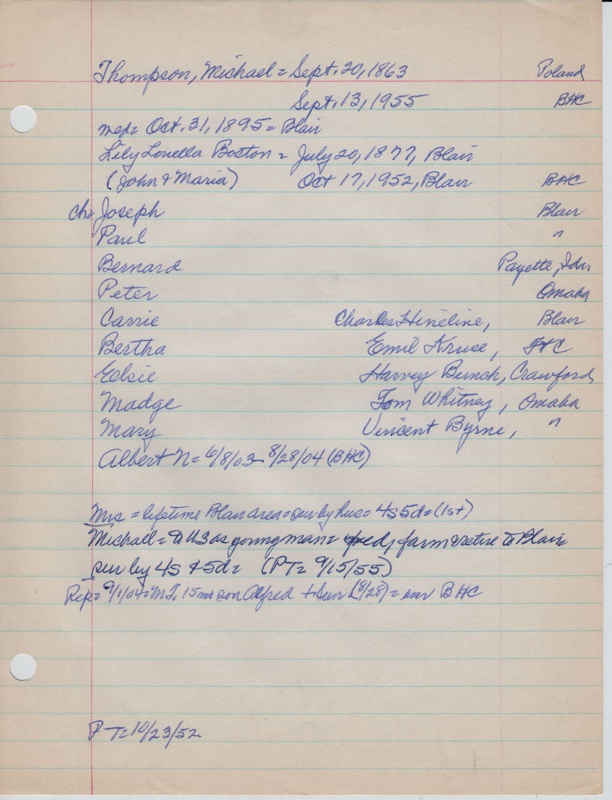 Thompson, Michael = Sept. 20, 1863 Poland
Sept. 13, 1955 BHC
m = Oct. 31, 1895 = Blair
Lily Louella Boston = July 20, 1877, Blair
(John & Maria) Oct 17, 1952, Blair BHC
ch = Joseph Blair
Paul "
Bernard Payette, Ida
Peter Omaha
Carrie Charles Hineline, Blair
Bertha Emil Kruse, HC
Elsie Harvey Bunch, Crawford
Madge Tom Whitney, Omaha
Mary Vincent Byrne, "
Albert N = 6/8/03 - 8/28/04 (BHC)
Mrs = lifetime Blair area = sur by hus = 4s 5d = (1st)
Michael = to US as young man = farm & retire to Blair
sur by 4s & 5d = (PT = 9/15/55)
Rep = 9/1/04 = M.T. 15 mo son Alfred + Sun (8/28) = BHC
PT = 10/23/52